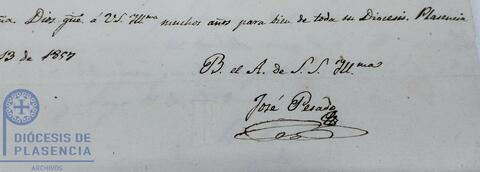 Dios gue. á V.S. Illma muchos años para bien de toda su Diócesis. Plasencia
13 de 1857
B. el A. de S. S. Illma
José Pesado
DIÓCESIS DE
PLASENCIA
ARCHIVOS